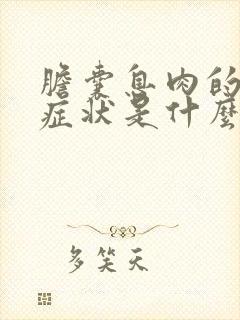 膽囊息肉的
症状是什麽
多笑天